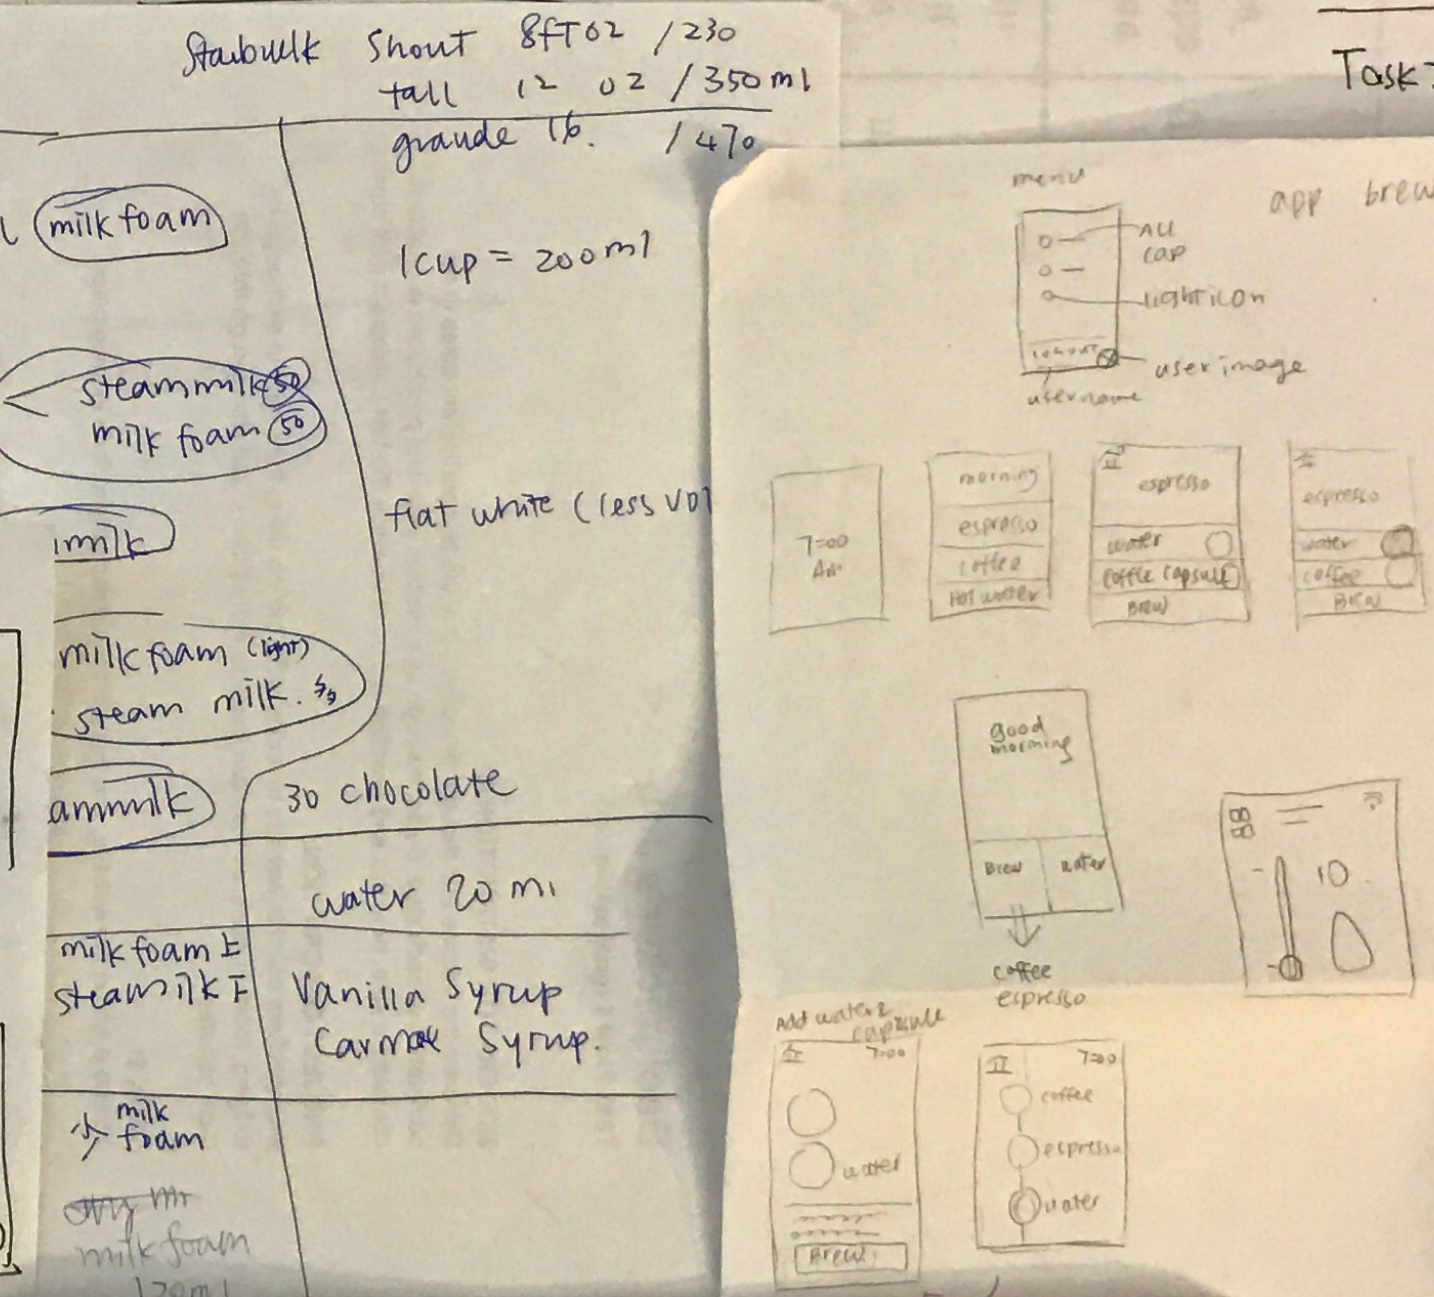 Starbuck Shout 8ft02 /230
tall 12 02 /350ml
grande 16. /470
milk foam
1cup = 200ml
steammilk 50
milk foam 50
flat white (less vol
milk
milk foam (light)
steam milk.
ammilk
30 chocolate
water 20 ml
milk foam 上
steamilk 下
Vanilla Syrup
Syrup.
少 milk
foam
milk foam
120ml
Task
menu
app brew
ALL
cap
light icon
user image
username
7:00
Am
morning
espresso
coffee
Hot water
espresso
water
coffee capsule
Brew
espresso
water
coffee
Brew
good
morning
Brew water
coffee
espresso
10
Add water &
capsule
7:00
water
Brew
7:00
coffee
espresso
water